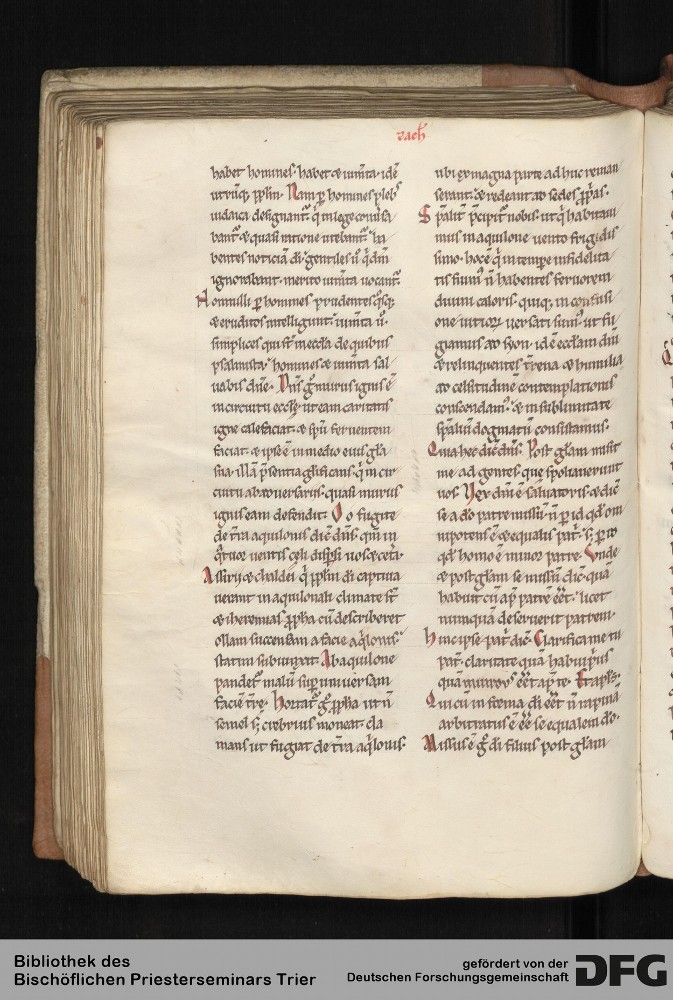 zach
habet homines. habet & iumta. idē
utrūq; pplm. Nam p homines plebs
iudaica designant. q in lege conusa
bant & quasi ratione utebant. ha
bentes noticiā di. gentiles u qdm
ignorabant. merito iumta uocant.
Nonnulli p homines prudentes qsq;
& eruditos intelligunt. iumta u.
simplices qui st in eccla de quibus
psalmista. homines & iumta sal
uabis dne. Dns g murus ignis ē
in circuitu eccle ut eam caritatis
igne calefaciat. & spu feruentem
faciat. & ipse ē in medio eius gla
sua. illā psentia glificans. q in cir
cuitu ab aduersariis. quasi murus
ignis eam defendit. O o fugite
de tra aquilonis dic dns. qm in
qtuor uentis celi dispsi uos & cet.
Assirii & chaldei q pplm di captiua
uerant in aquilonali climate st
& iheremias ppha cū describeret
ollam succensam a facie aqlonis.
statim subiunxit. Ab aquilone
pandet malū sup uniuersam
faciē tre. Hortat g ppha ut n
semel s; crebrius moneat. cla
mans ut fugiat de tra aqlonis.
ubi ex magna parte adhuc reman
serant. & redeant ad sedes ppas.
Spalit pcipit nobis. ut q habitaui
mus in aquilone uento frigidis
simo. hoc ē q in tempe infidelita
tis fuim n habentes feruorem
diuini caloris. quiq; in confusi
one uitiorū uersati sum. ut fu
giamus ad syon. id ē eccliam dni
& relinquentes trena & humilia
ad celsitudinē contemplationis
conscendam. & in sublimitate
spaliū dogmatū consistamus.
Quia hec dic dns. Post glam misit
me ad gentes que spoliauerunt
uos. Vox dni ē saluatoris. & dic
se a do patre missū. n p id qd om
nipotens ē & equalis pat. s; p id
qd homo ē minor patre. Vnde
& post glam se missū dic. quā
habuit cū ap patrē eet. licet
numquā deseruerit patrem.
hinc ipse pat dic. Clarifica me tu
pat. claritate quā habui prius
quā mundus eet ap te. Et apls.
Qui cū in forma di eet n rapinā
arbitratus ē ee se equalem do.
Missus ē g di filius post glam
Bibliothek des
Bischöflichen Priesterseminars Trier
gefördert von der
Deutschen Forschungsgemeinschaft
DFG